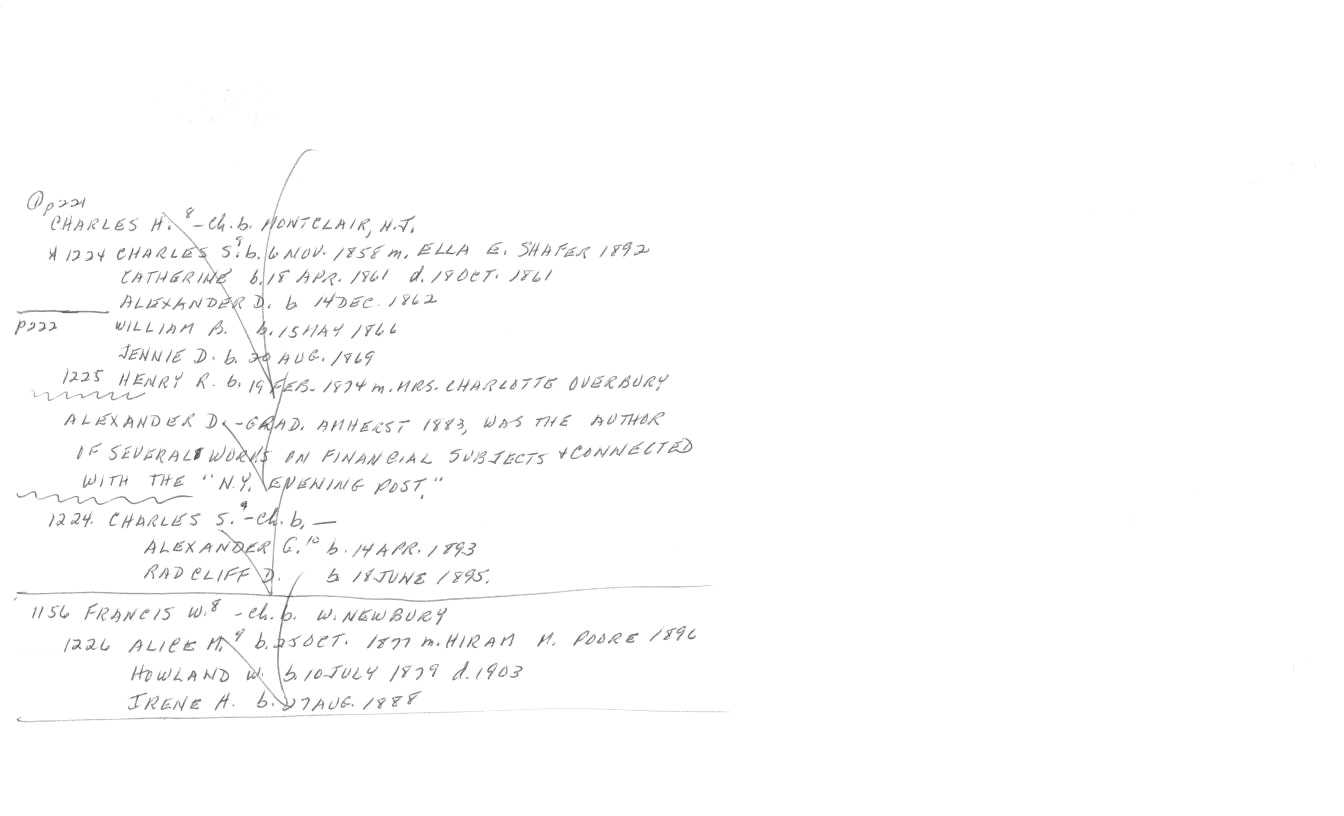 ① p221
CHARLES H.⁸ - Ch. b. MONTCLAIR, N.J.
* 1224 CHARLES S.⁹ b. 6 NOV. 1858 m. ELLA E. SHAFER 1892
CATHERINE b. 18 APR. 1861 d. 19 OCT. 1861
ALEXANDER D. b 14 DEC. 1862
p222 WILLIAM B. b. 15 MAY 1866
JENNIE D. b. 20 AUG. 1869
1225 HENRY R. b. 19 FEB. 1874 m. MRS. CHARLOTTE OVERBURY
ALEXANDER D. - GRAD. AMHERST 1883, WAS THE AUTHOR
OF SEVERAL WORKS ON FINANCIAL SUBJECTS & CONNECTED
WITH THE "N.Y. EVENING POST."
1224. CHARLES S.⁹ - Ch. b. —
ALEXANDER G.¹⁰ b. 14 APR. 1893
RADCLIFF D. b 18 JUNE 1895.
1156 FRANCIS W.⁸ - Ch. b. W. NEWBURY
1226 ALICE M.⁹ b. 25 OCT. 1877 m. HIRAM M. POORE 1896
HOWLAND W. b. 10 JULY 1879 d. 1903
IRENE A. b. 27 AUG. 1888